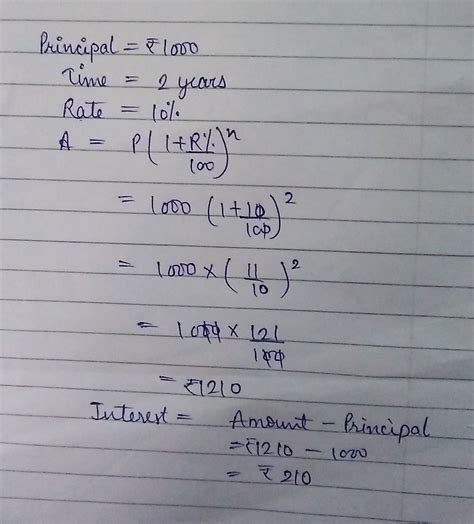 Principal = ₹1000
Time = 2 years
Rate = 10%
A = P(1+R%/100)^n
= 1000 (1+10/100)^2
= 1000 × (11/10)^2
= 1000 × 121/100
= ₹1210
Interest = Amount - Principal
= ₹1210 - 1000
= ₹210